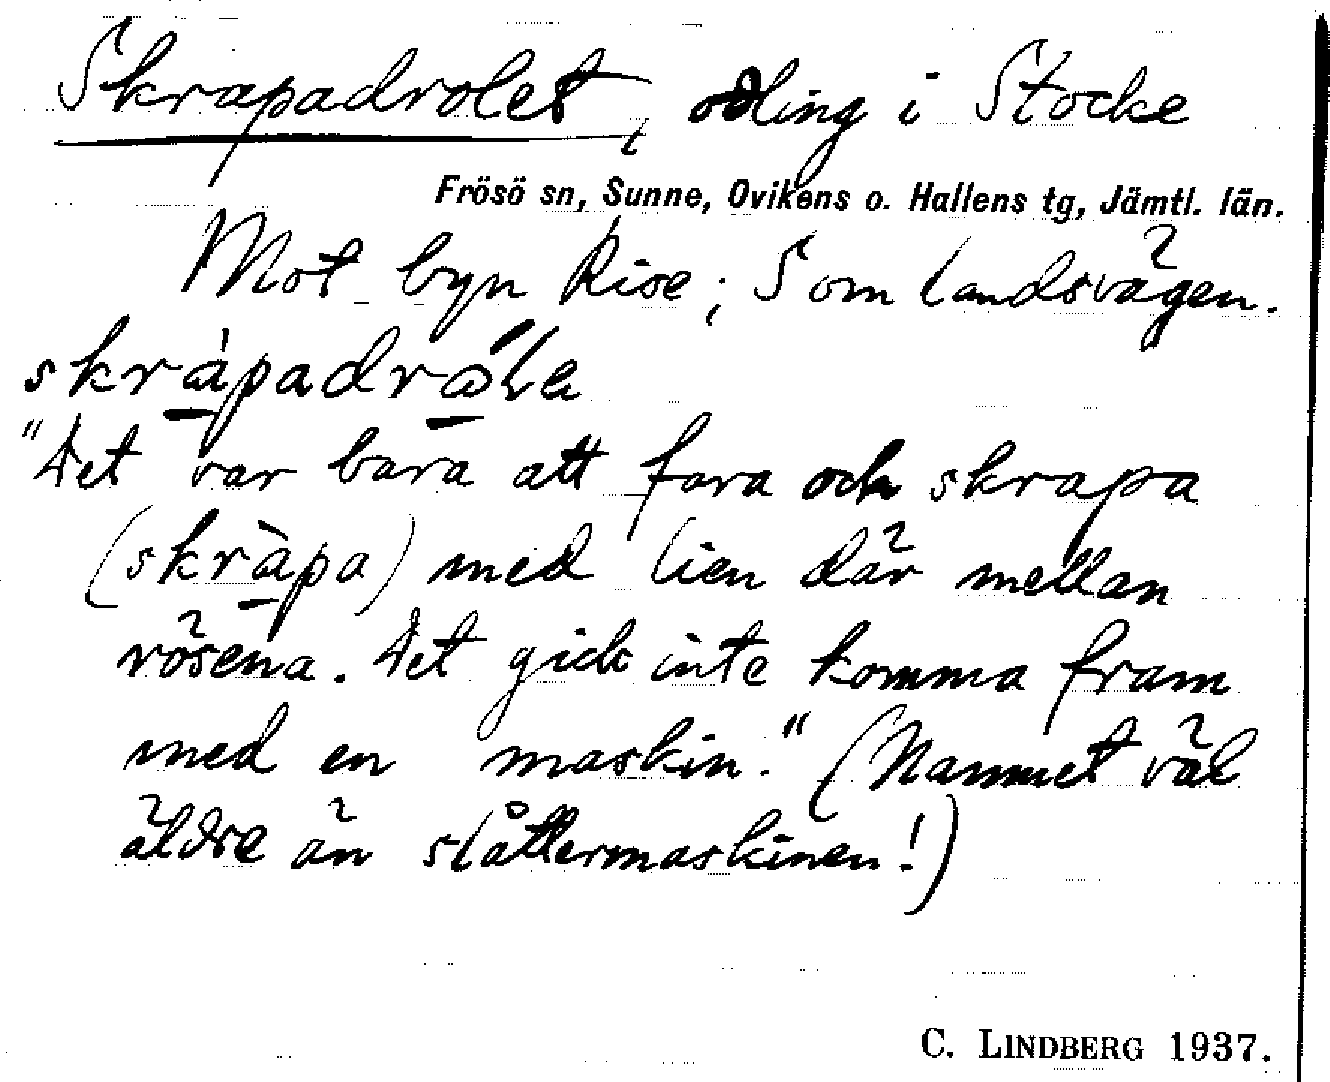 Skrapadrolet, odling i Stocke
Frösö sn, Sunne, Ovikens o. Hallens tg, Jämtl. län.
Mot byn Rise; S om landsvägen.
skràpadróla
"Det var bara att fara och skrapa
(skràpa) med lien där mellan
rösena. Det gick inte komma fram
med en maskin." (Namnet väl
äldre än slåttermaskinen!)
C. LINDBERG 1937.